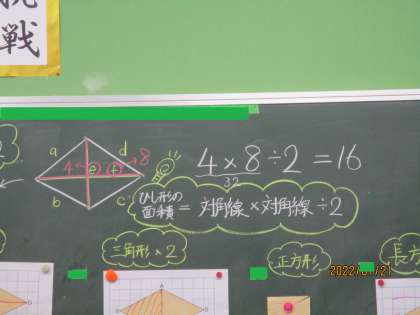 挑
戦
a
d
4
e
f
8
b
c
4×8÷2=16
32
ひし形の
面積=対角線×対角線÷2
三角形×2
正方形
長方
2022/01/21